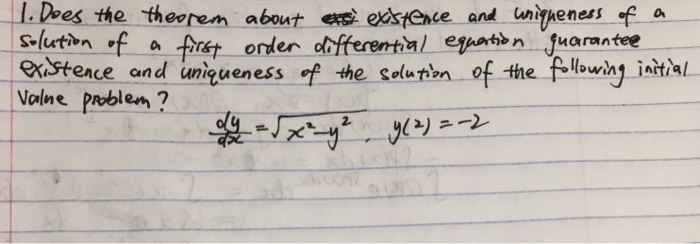 1. Does the theorem about existence and uniqueness of a
solution of a first order differential equation guarantee
existence and uniqueness of the solution of the following initial
value problem?
dy/dx = √(x²-y²), y(2) = -2